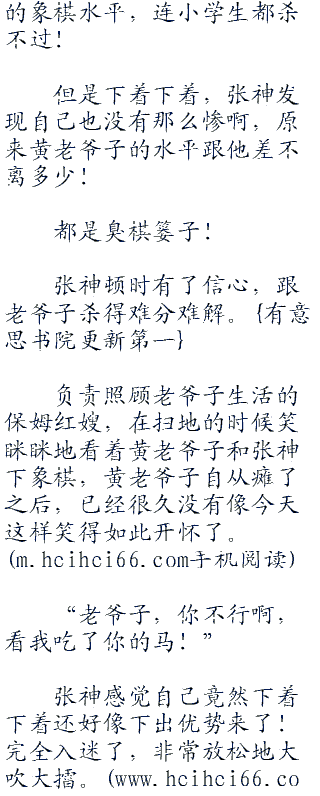 的象棋水平，连小学生都杀
不过！
但是下着下着，张神发
现自己也没有那么惨啊，原
来黄老爷子的水平跟他差不
离多少！
都是臭棋篓子！
张神顿时有了信心，跟
老爷子杀得难分难解。{有意
思书院更新第一}
负责照顾老爷子生活的
保姆红嫂，在扫地的时候笑
眯眯地看着黄老爷子和张神
下象棋，黄老爷子自从瘫了
之后，已经很久没有像今天
这样笑得如此开怀了。
(m.hcihci66.com手机阅读)
“老爷子，你不行啊，
看我吃了你的马！”
张神感觉自己竟然下着
下着还好像下出优势来了！
完全入迷了，非常放松地大
吹大擂。(www.hcihci66.co